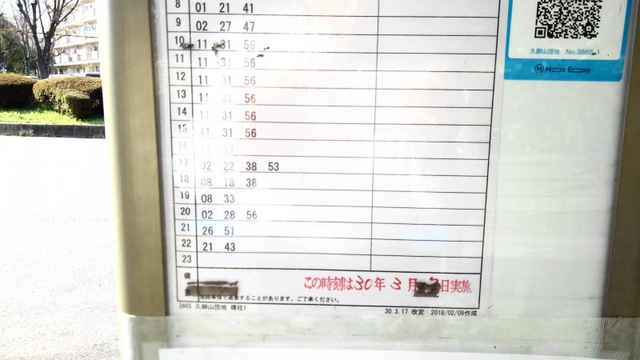 8 01 21 41
9 02 27 47
10 11 31 56
11 11 31 56
12 11 31 56
13 11 31 56
14 11 31 56
15 11 31 56
16
17 02 22 38 53
18 08 18 38
19 08 33
20 02 28 56
21 26 51
22 21 43
23
備
この時刻は30年3月 日実施
することがあります。ご了承ください。
3865 久御山団地 標柱1
30.3.17 改定 2018/02/09作成
久御山団地 No.3865-1